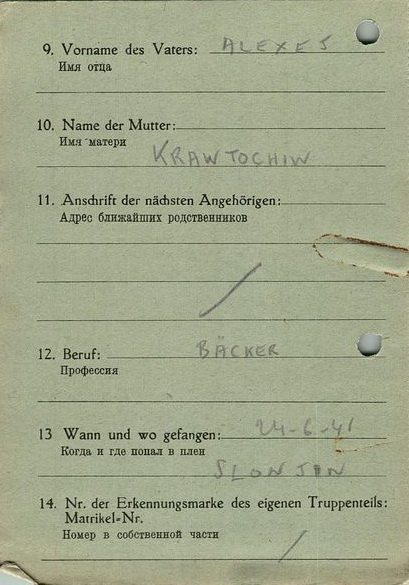 9. Vorname des Vaters: ALEXEJ
Имя отца
10. Name der Mutter:
Имя матери
KRAWTOCHIW
11. Anschrift der nächsten Angehörigen:
Адрес ближайших родственников
12. Beruf: BÄCKER
Профессия
13 Wann und wo gefangen: 24-6-41
Когда и где попал в плен
SLONJIN
14. Nr. der Erkennungsmarke des eigenen Truppenteils:
Matrikel-Nr.
Номер в собственной части